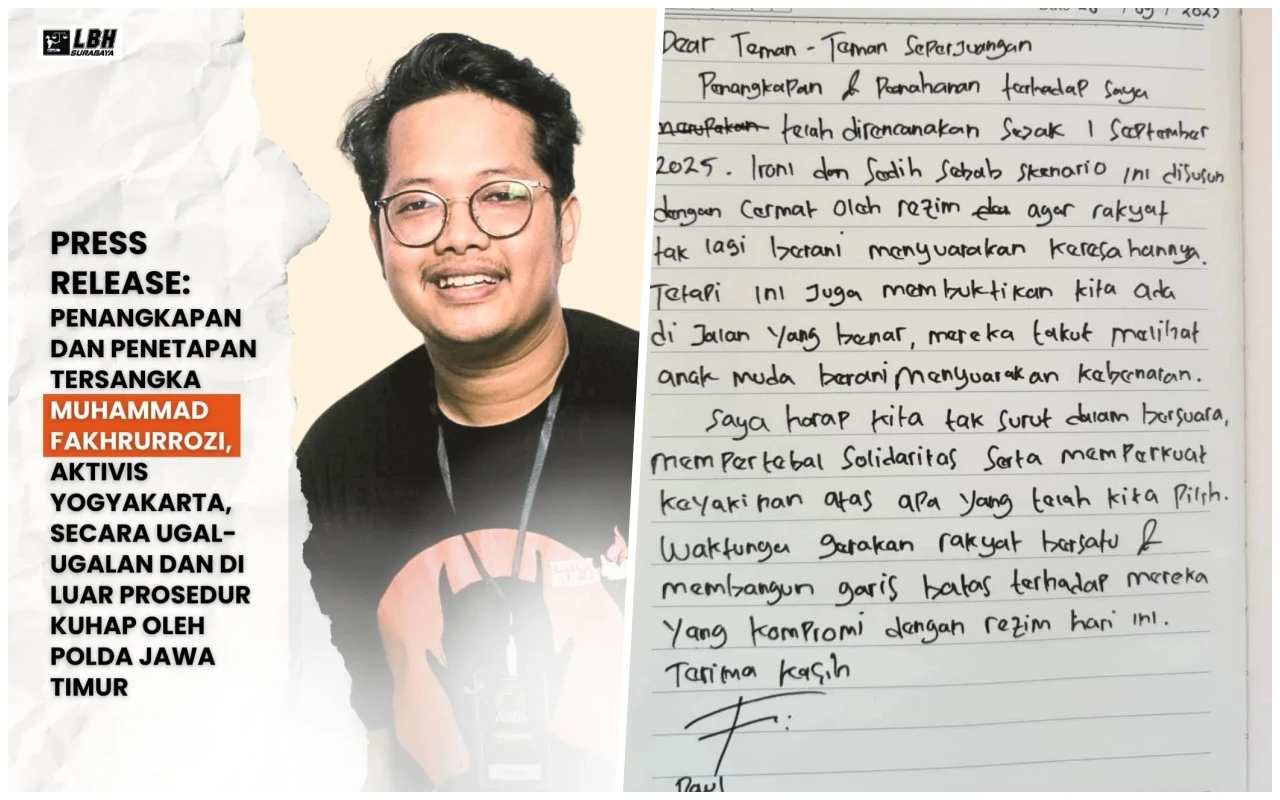 LBH
SURABAYA
PRESS
RELEASE:
PENANGKAPAN
DAN PENETAPAN
TERSANGKA
MUHAMMAD
FAKHRURROZI,
AKTIVIS
YOGYAKARTA,
SECARA UGAL-
UGALAN DAN DI
LUAR PROSEDUR
KUHAP OLEH
POLDA JAWA
TIMUR
Dear Teman - Teman Seperjuangan
Penangkapan & Penahanan terhadap saya
merupakan telah direncanakan sejak 1 September
2025. Ironi dan Sedih sebab skenario ini disusun
dengan cermat oleh rezim agar rakyat
tak lagi berani menyuarakan keresahannya.
Tetapi ini juga membuktikan kita ada
di Jalan yang benar, mereka takut melihat
anak muda berani menyuarakan kebenaran.
Saya harap kita tak surut dalam bersuara,
mempertebal Solidaritas serta memperkuat
keyakinan atas apa yang telah kita Pilih.
Waktunya gerakan rakyat bersatu &
membangun garis batas terhadap mereka
yang kompromi dengan rezim hari ini.
Terima kasih
Paul